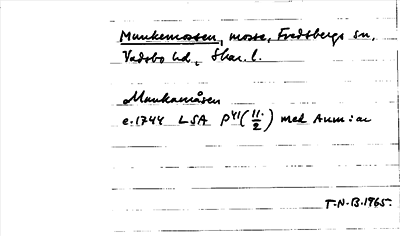 Munkemossen, mosse, Fredsbergs sn,
Vadsbo hd, Skar. l.
Munkamåsen
c. 1744 LSA P41 (11/2) med Anm: ar
T-N-B. 1965